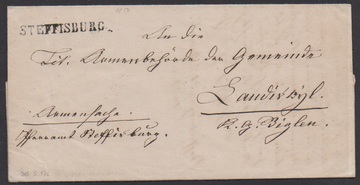 STEFFISBURG.
An die
Tit. Armenbehörde der Gemeinde
Landiswyl.
K. G. Biglen.
Armensache.
Pfarramt Steffisburg.